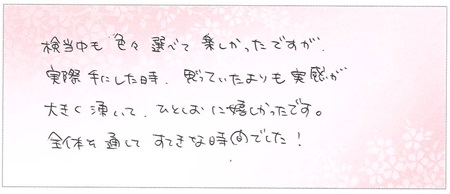 検当中も色々選べて楽しかったですが、
実際手にした時、思っていたよりも実感が
大きく湧いて、ひとしおに嬉しかったです。
全体を通してすてきな時間でした!